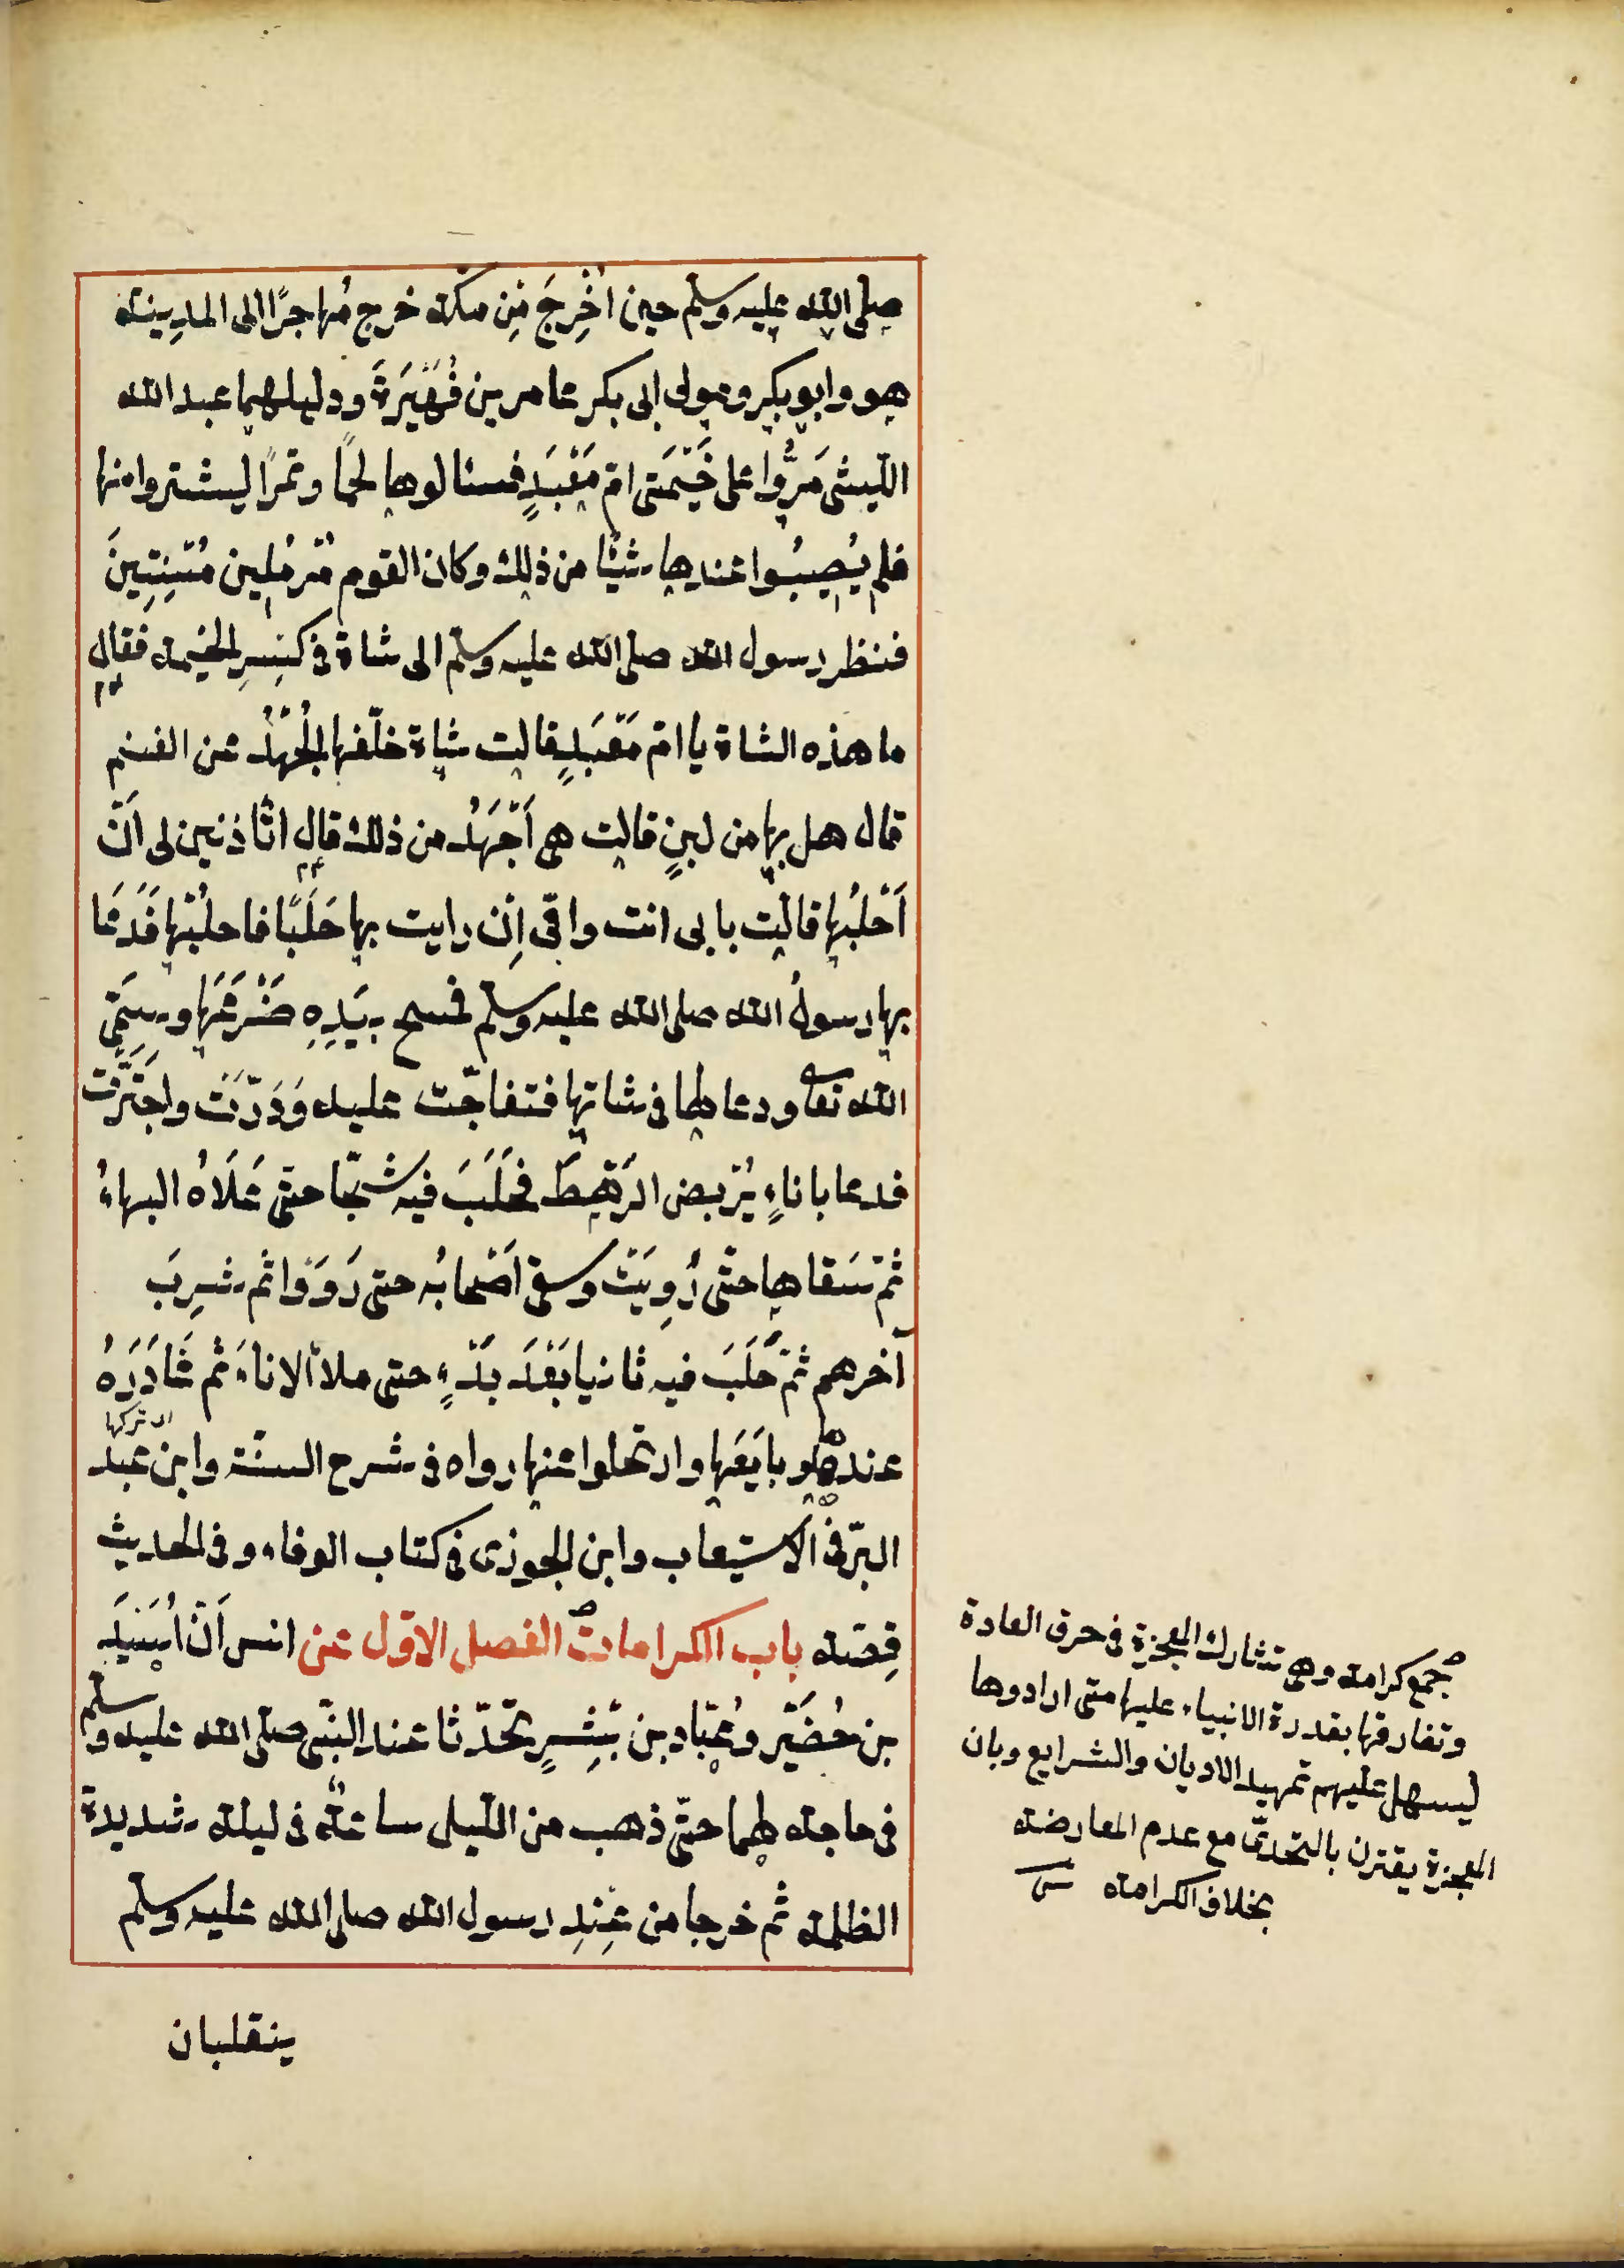 صلى الله عليه وسلم حين اُخْرِجَ مِن مكة خرج مُهاجرًا الى المدِينة
هو وابو بكر ومولى ابى بكر عامر بن فُهَيْرَةَ ودليلهما عبد الله
الليثى مَرُّوا على خَيْمَتى امّ مَعْبَدٍ فسئالوها لحمًا وتمرًا ليشتروا منها
فلم يُصِيبُوا عندها شيئًا من ذلك وكان القوم مُرْمِلين مُسْنِتِينَ
فنظر رسول الله صلى الله عليه وسلم الى شاة فى كِسِرِ الخيمة فقال
ما هذه الشاة يا امّ مَعْبَدٍ قالت شاة خلّفها الجُهْدُ عن الغنم
قال هل بها من لبنٍ قالت هى اَجْهَدُ من ذلك قال اتأذنين لى اَنْ
اَحْلبُها قالت بابى انت وامّى اِنْ رايت بها حَلَبًا فاحلبْها فَدَعَا
بها رسولُ الله صلى الله عليه وسلم فمسح بيَدِهِ ضَرْعَهَا وسَمّى
الله تعا ودعا لها فى شاتها فتفاجّت عليه وَدَرّتْ واجْتَرَّت
فدعا باناءٍ يُرْبض الرَهْطَ فحَلَبَ فيه ثجّا حتى عَلَاهُ البهاءُ
ثمّ سَقاها حتّى رُوِيَتْ وسقى اَصْحابُه حتى رَوَوْا ثم شرِبَ
آخرهم ثمّ حَلَبَ فيه ثانيا بَعْدَ بَدْءٍ حتى ملأ الاناءَ ثم غَادَرَهُ
اى تركها
عندها وبايَعَها وارتحلوا عنها رواه فى شرح السنّة وابن عبد
البرّ فى الاستيعاب وابن الجوزى فى كتاب الوفاء وفى الحديث
قِصّة باب الكرامات الفصل الاوّل عن انس اَنّ اُسَيْدَ
بن حُضَيْر وعُبّاد بن بْشِرٍ تحدّثا عند النبّى صلى الله عليه وسلم
فى حاجة لهما حتّى ذهب من الليل ساعةٌ فى ليلة شديدة
الظلمة ثم خرجا من عِنْدِ رسول الله صلى الله عليه وسلم
ينقلبان
جمع كرامة وهى تشارك المعجزة فى خرق العادة
وتفارقها بقدرة الانبياء عليها متى ارادوها
ليسهل عليهم تمهيد الاديان والشرايع وبان
المعجزة يقترن بالتحدّى مع عدم المعارضة
بخلاف الكرامة